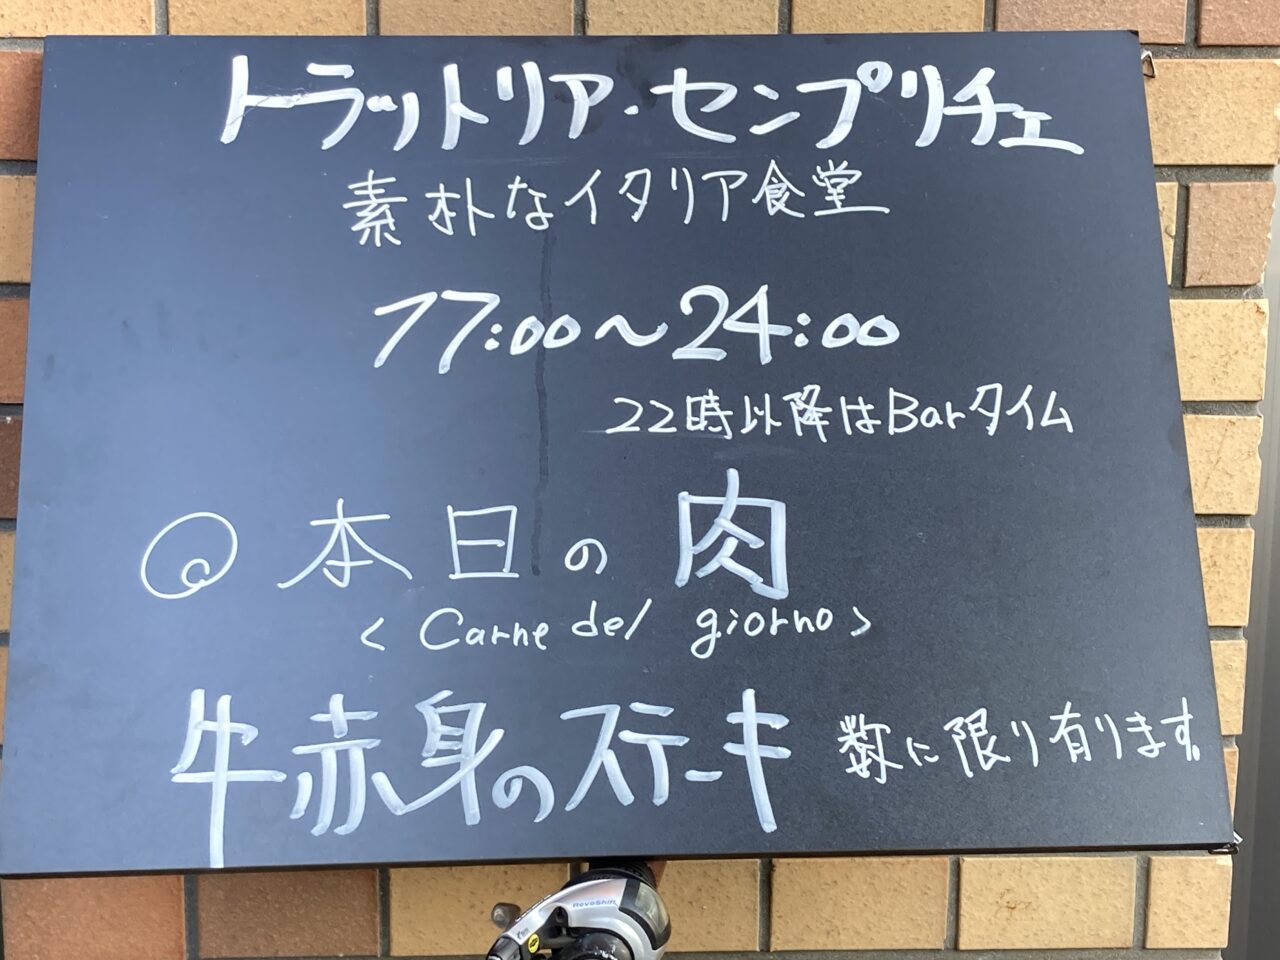 トラットリア・センプリチェ
素朴なイタリア食堂
17:00〜24:00
22時以降はBarタイム
◎ 本日の肉
< Carne del giorno >
牛赤身のステーキ 数に限り有ります。
RevoShift